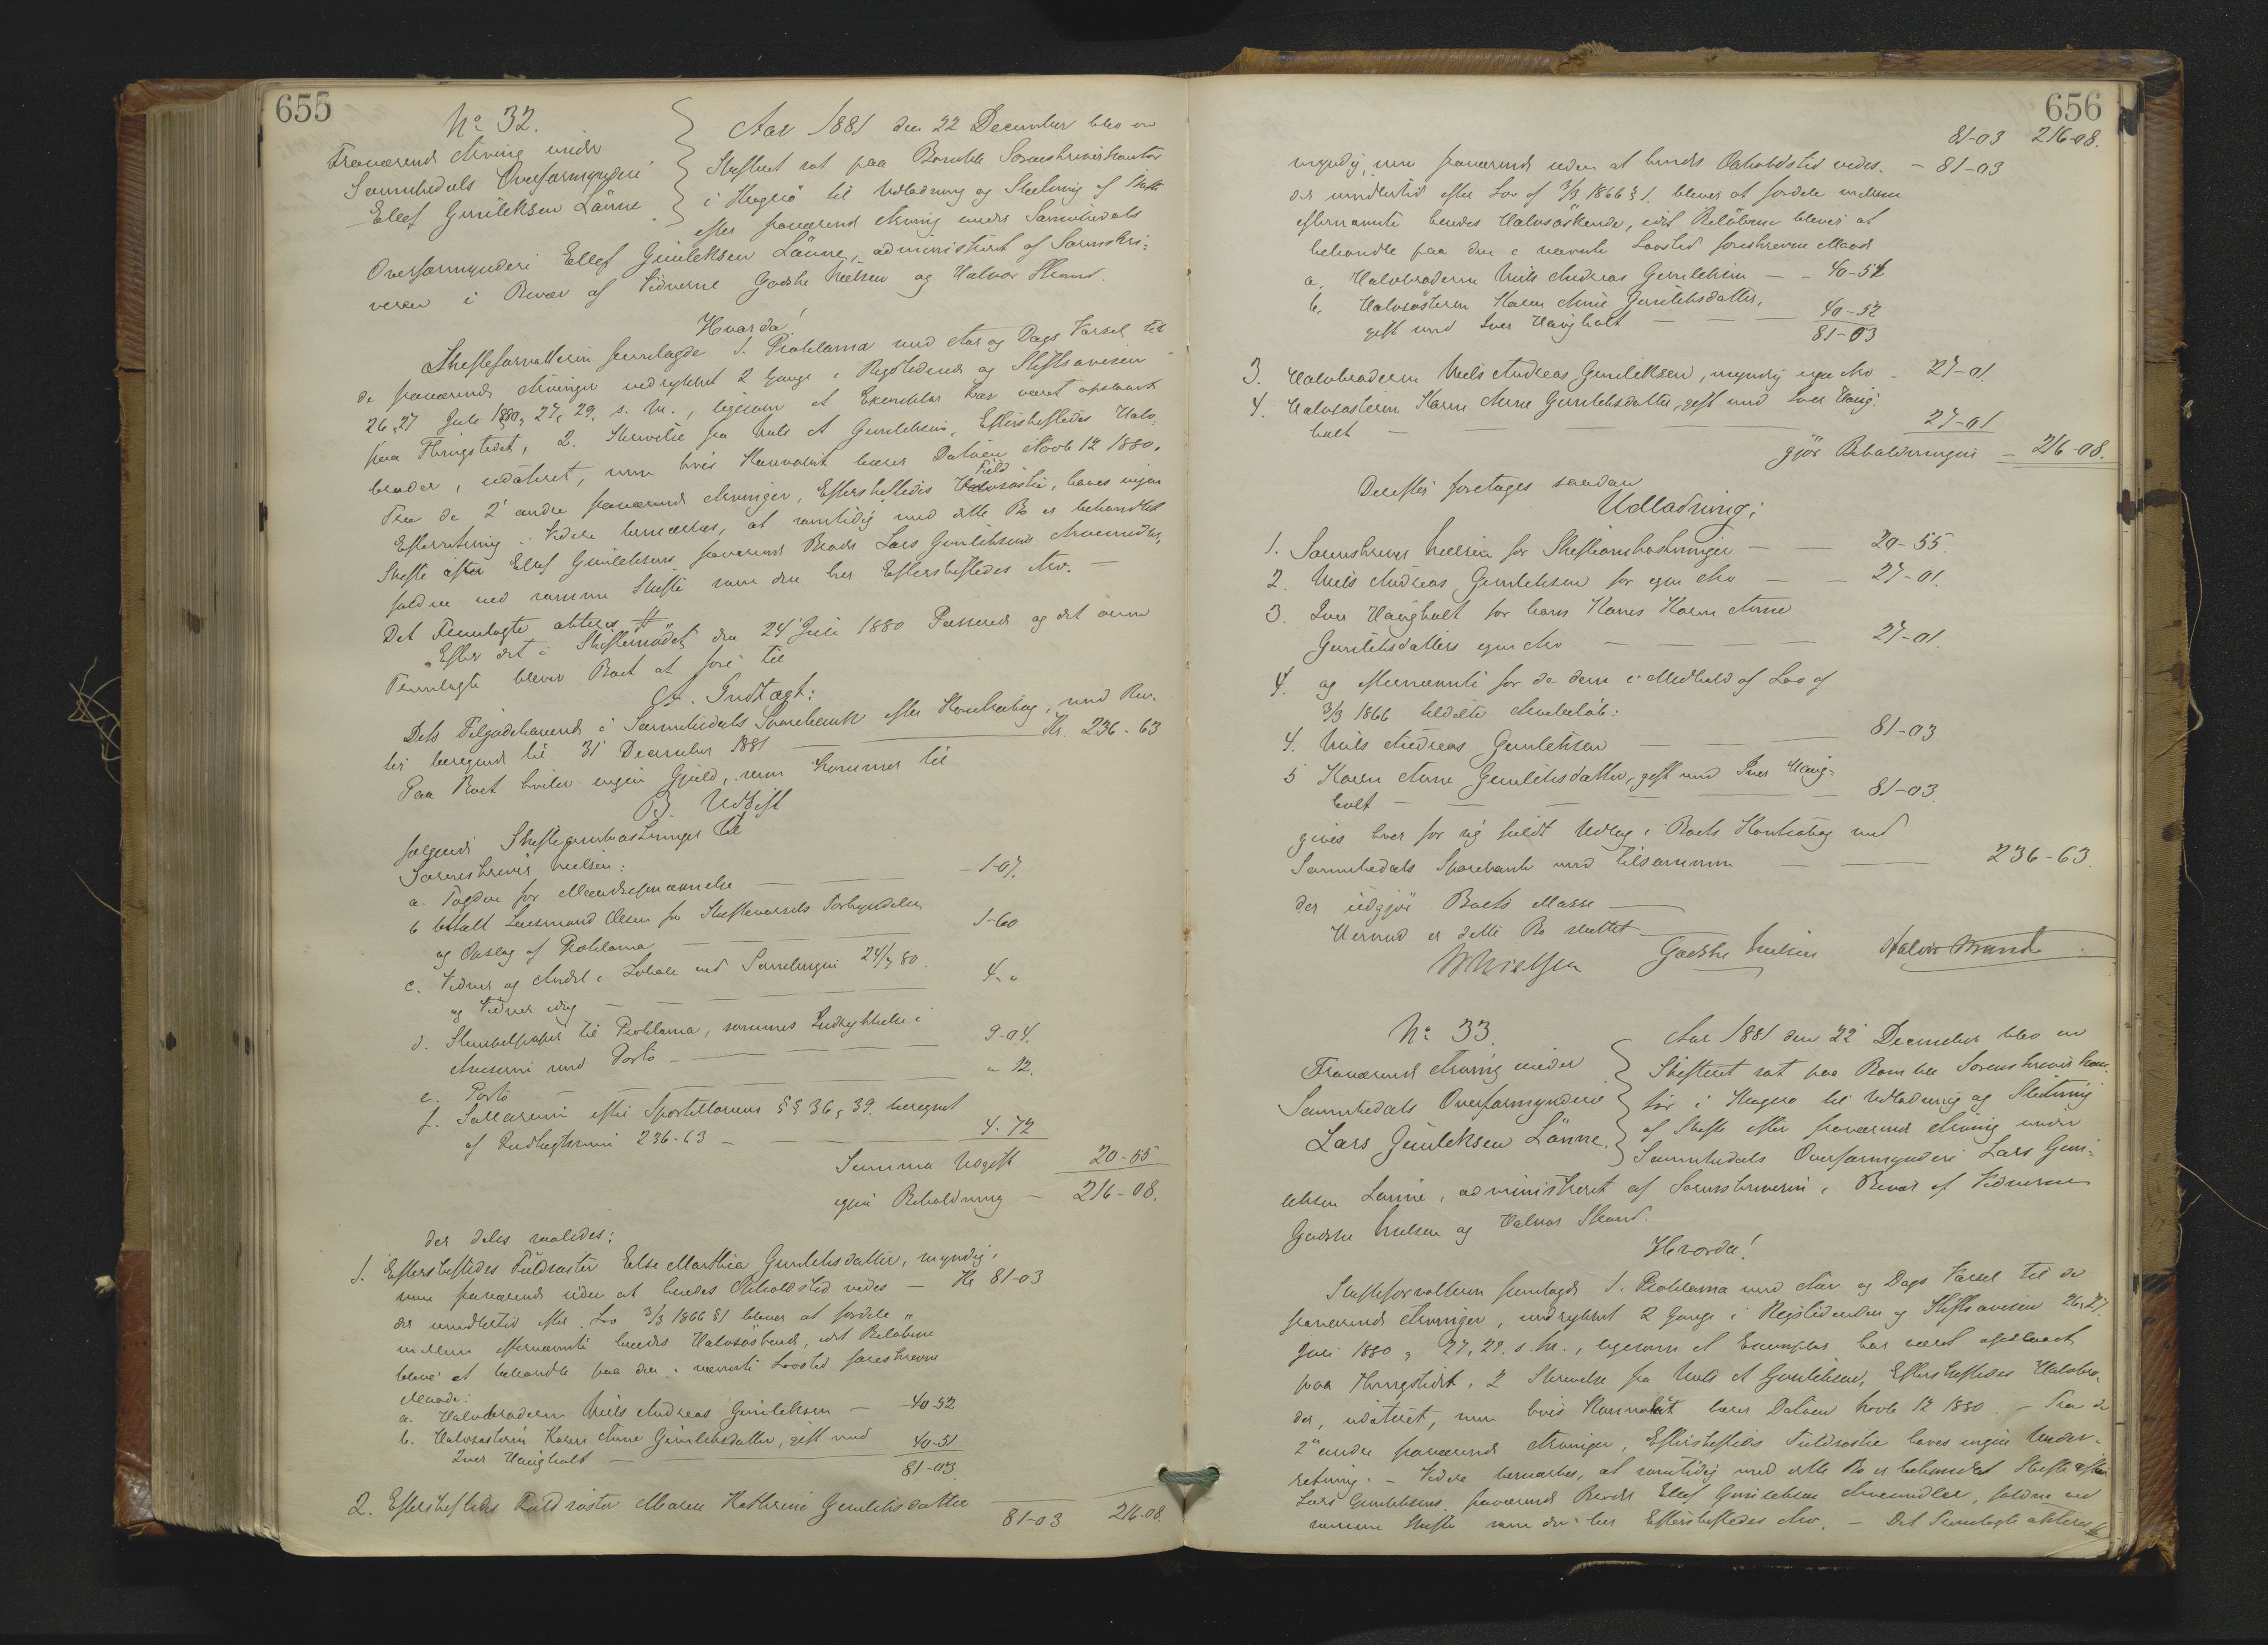 655
No 32.
Fraværende Arving under
Sannikedals Overformynderi
Ellef Gunleksen Lønne.
Aar 1881 den 22 December blev en
Skifteret sat paa Bamble Sorenskriverkontor
i Kragerø til Udlodning og Slutning af Skifte
efter fraværende Arving under Sannikedals
Overformynderi Ellef Gunleksen Lønne, administreret af Sorenskri-
veren i Bivær af Vidnerne Godske Nielsen og Halvor Strand.
Hvorda!
Skifteforvalteren fremlagde 1. Proklama med Aar og Dags Varsel til
de fraværende Arvinger indrykket 2 Gange i Rigstidende og Stiftsavisen
26, 27 Juli 1880, 27, 29. s. M., ligesom et Exemplar har været opslaaet
paa Thingstedet, 2. Skrivelse fra Niels A Gunleksen, Efterskiftedes Halv-
broder, udateret, men hvis Konvolut bærer Datoen Novb 12 1880.
Fra de 2 andre fraværende Arvinger, Efterskiftedes Fuldsøstre, haves ingen
Efterretning. Videre bemærkes, at samtidig med dette Bo er behandlet
Skifte efter Ellef Gunleksens fraværende Broder Lars Gunleksens Arvemidler,
faldne ved samme Skifte som den her Efterskiftedes Arv. —
Det Fremlagte akteres #
Efter det i Skiftemødet den 24 Juli 1880 Passerede og det ovenn
Fremlagte bliver Boet at føre til
A. Indtægt:
Dets Tilgodehavende i Sannikedals Sparebank efter Kontrabog, med Ren-
ter beregnede til 31 December 1881 — Kr. 236-63
Paa Boet hviler ingen Gjæld, men kommer til
B. Udgift
følgende Skifteomkostninger til
Sorenskriver Nielsen:
a. Fogden for Mændsopnævnelse — 1-07.
b betalt Lensmand Olsen for Skiftevarsels Forkyndelse
og Opslag af Proklama — 1-60
c. Vidner og Andel i Lokale ved Samlingen 24/7 80.
og Vidner idag — 4 „
d. Stempelpapir til Proklama, sammes Indrykkelse i
Aviserne med Porto — 9-04.
e. Porto — „ 12.
f. Sallarium efter Sportellovens §§ 36, 39. beregnet
af Indtægtssum 236-63 — 4.72
Summa Udgift 20-55
igjen Beholdning — 216-08.
der deles saaledes:
1. Efterskiftedes Fuldsøster Else Marthia Gunleksdatter, myndig,
men fraværende uden at hendes Opholdssted vides — Kr 81-03
der imidlertid efter Lov 3/3 1866 § 1 bliver at fordele
mellem efternævnte hendes Halvsøskende, idet Beløbene
bliver at behandle paa den i nævnte Lovsted foreskrevne
Maade:
a. Halvbroderen Niels Andreas Gunleksen — 40-52
b. Halvsøsteren Karen Anne Gunleksdatter, gift med
Iver Haugholt — 40-51
81-03.
2. Efterskiftedes Fuldsøster Maren Kathrine Gunleksdatter
81-03 216-08.
656
81-03 216-08.
myndig, men fraværende uden at hendes Opholdssted vides. — 81-03
der imidlertid efter Lov af 3/3 1866 § 1. bliver at fordele mellem
efternævnte hendes Halvsøskende, idet Beløbene bliver at
behandle paa den i nævnte Lovsted foreskrevne Maade
a. Halvbroderen Niels Andreas Gunleksen — 40-51
b. Halvsøsteren Karen Anne Gunleksdatter,
gift med Iver Haugholt — 40-52
81-03
3. Halvbroderen Niels Andreas Gunleksen, myndig egen Arv — 27-01.
4. Halvsøsteren Karen Anne Gunleksdatter, gift med Iver Haug-
holt — 27-01
gjør Beholdningen — 216-08.
Derefter foretages saadan
Udlodning:
1. Sorenskriver Nielsen for Skifteomkostninger — 20-55.
2. Niels Andreas Gunleksen for egen Arv — 27-01.
3. Iver Haugholt for hans Kones Karen Anne
Gunleksdatters egen Arv — 27-01.
4. og efternævnte for de dem i Medhold af Lov af
3/3 1866 tildelte Arvebeløb:
4. Niels Andreas Gunleksen — 81-03
5 Karen Anne Gunleksdatter, gift med Iver Haug-
holt — 81-03.
gives hver for sig fuldt Udlæg i Boets Kontrabog med
Sannikedals Sparebank med tilsammen — 236-63.
der udgjør Boets Masse —
Hermed er dette Bo sluttet.
Nielsen Godske Nielsen Halvor Strand
No 33.
Fraværende Arving under
Sannikedals Overformynderi
Lars Gunleksen Lønne.
Aar 1881 den 22 December blev en
Skifteret sat paa Bamble Sorenskriverkon-
tor i Kragerø til Udlodning og Slutning
af Skifte efter fraværende Arving under
Sannikedals Overformynderi Lars Gun-
leksen Lønne, administreret af Sorenskriveren i Bivær af Vidnerne
Godske Nielsen og Halvor Strand.
Hvorda!
Skifteforvalteren fremlagde 1. Proklama med Aar og Dags Varsel til de
fraværende Arvinger, indrykket 2 Gange i Rigstidenden og Stiftsavisen 26, 27.
Juli 1880, 27, 29. s. M., ligesom et Exemplar har været opslaaet
paa Thingstedet, 2 Skrivelse fra Niels A Gunleksen, Efterskiftedes Halvbro-
der, udateret, men hvis Konvolut bærer Datoen Novb 12 1880. — Fra de
2 andre fraværende Arvinger, Efterskiftedes Fuldsøstre haves ingen Under-
retning. — Videre bemærkes, at samtidig med dette Bo er behandlet Skifte efter
Lars Gunleksens fraværende Broder Ellef Gunleksens Arvemidler, faldne ved
samme Skifte som den her Efterskiftedes Arv. — Det Fremlagte akteres #